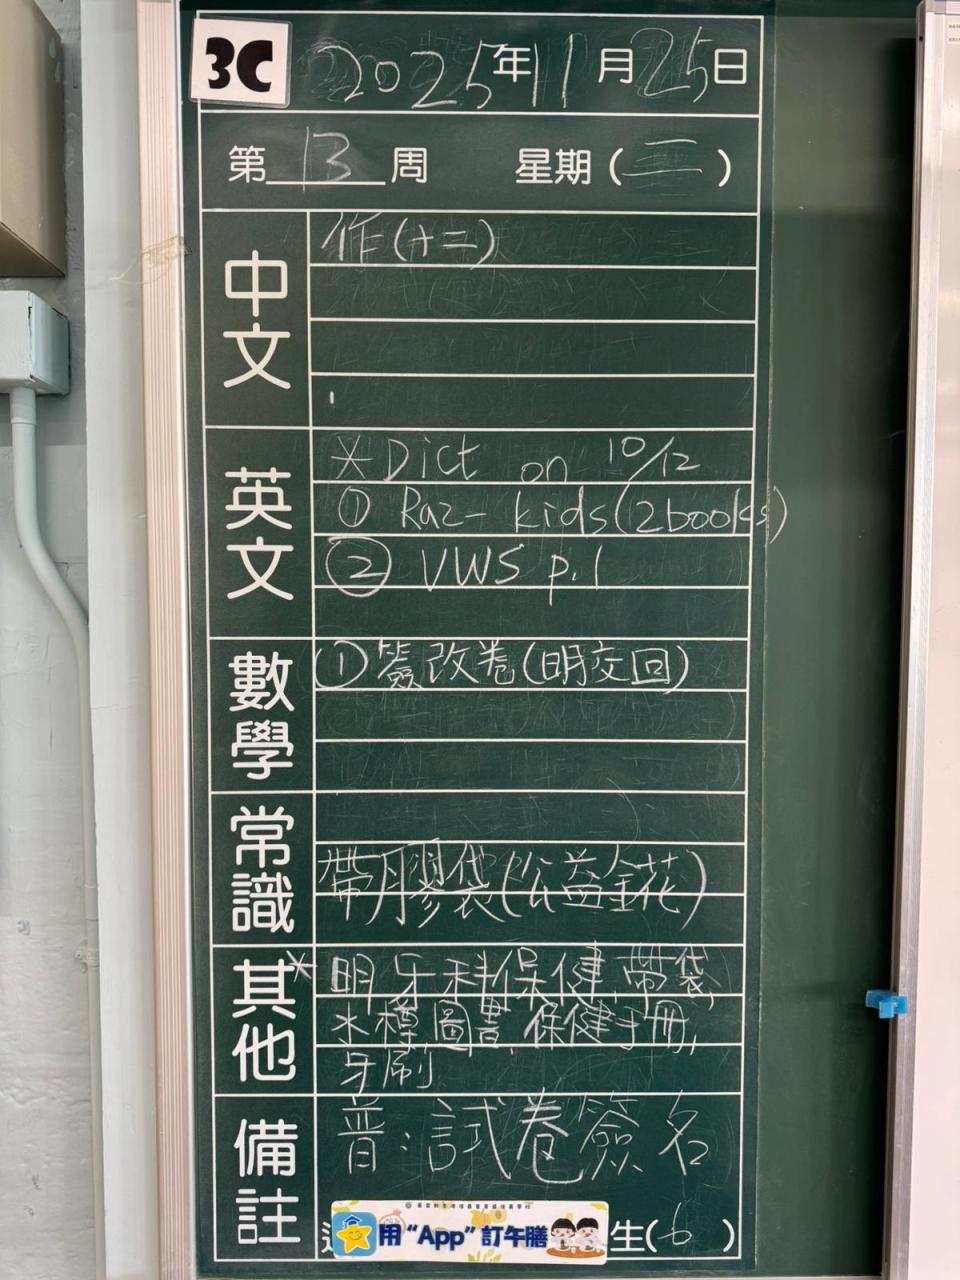 3C 2025年11月25日
第13周 星期(二)
中文
作(十二)
英文
*Dict on 10/12
① Raz-kids(2books)
② VWS p.1
數學
①簽改卷(明交回)
常識
帶膠袋(公益金花)
其他
*明牙科保健,帶袋,
水樽,圖書,保健手冊,
牙刷
備註
普:試卷簽名
用“App”訂午膳
生(6)